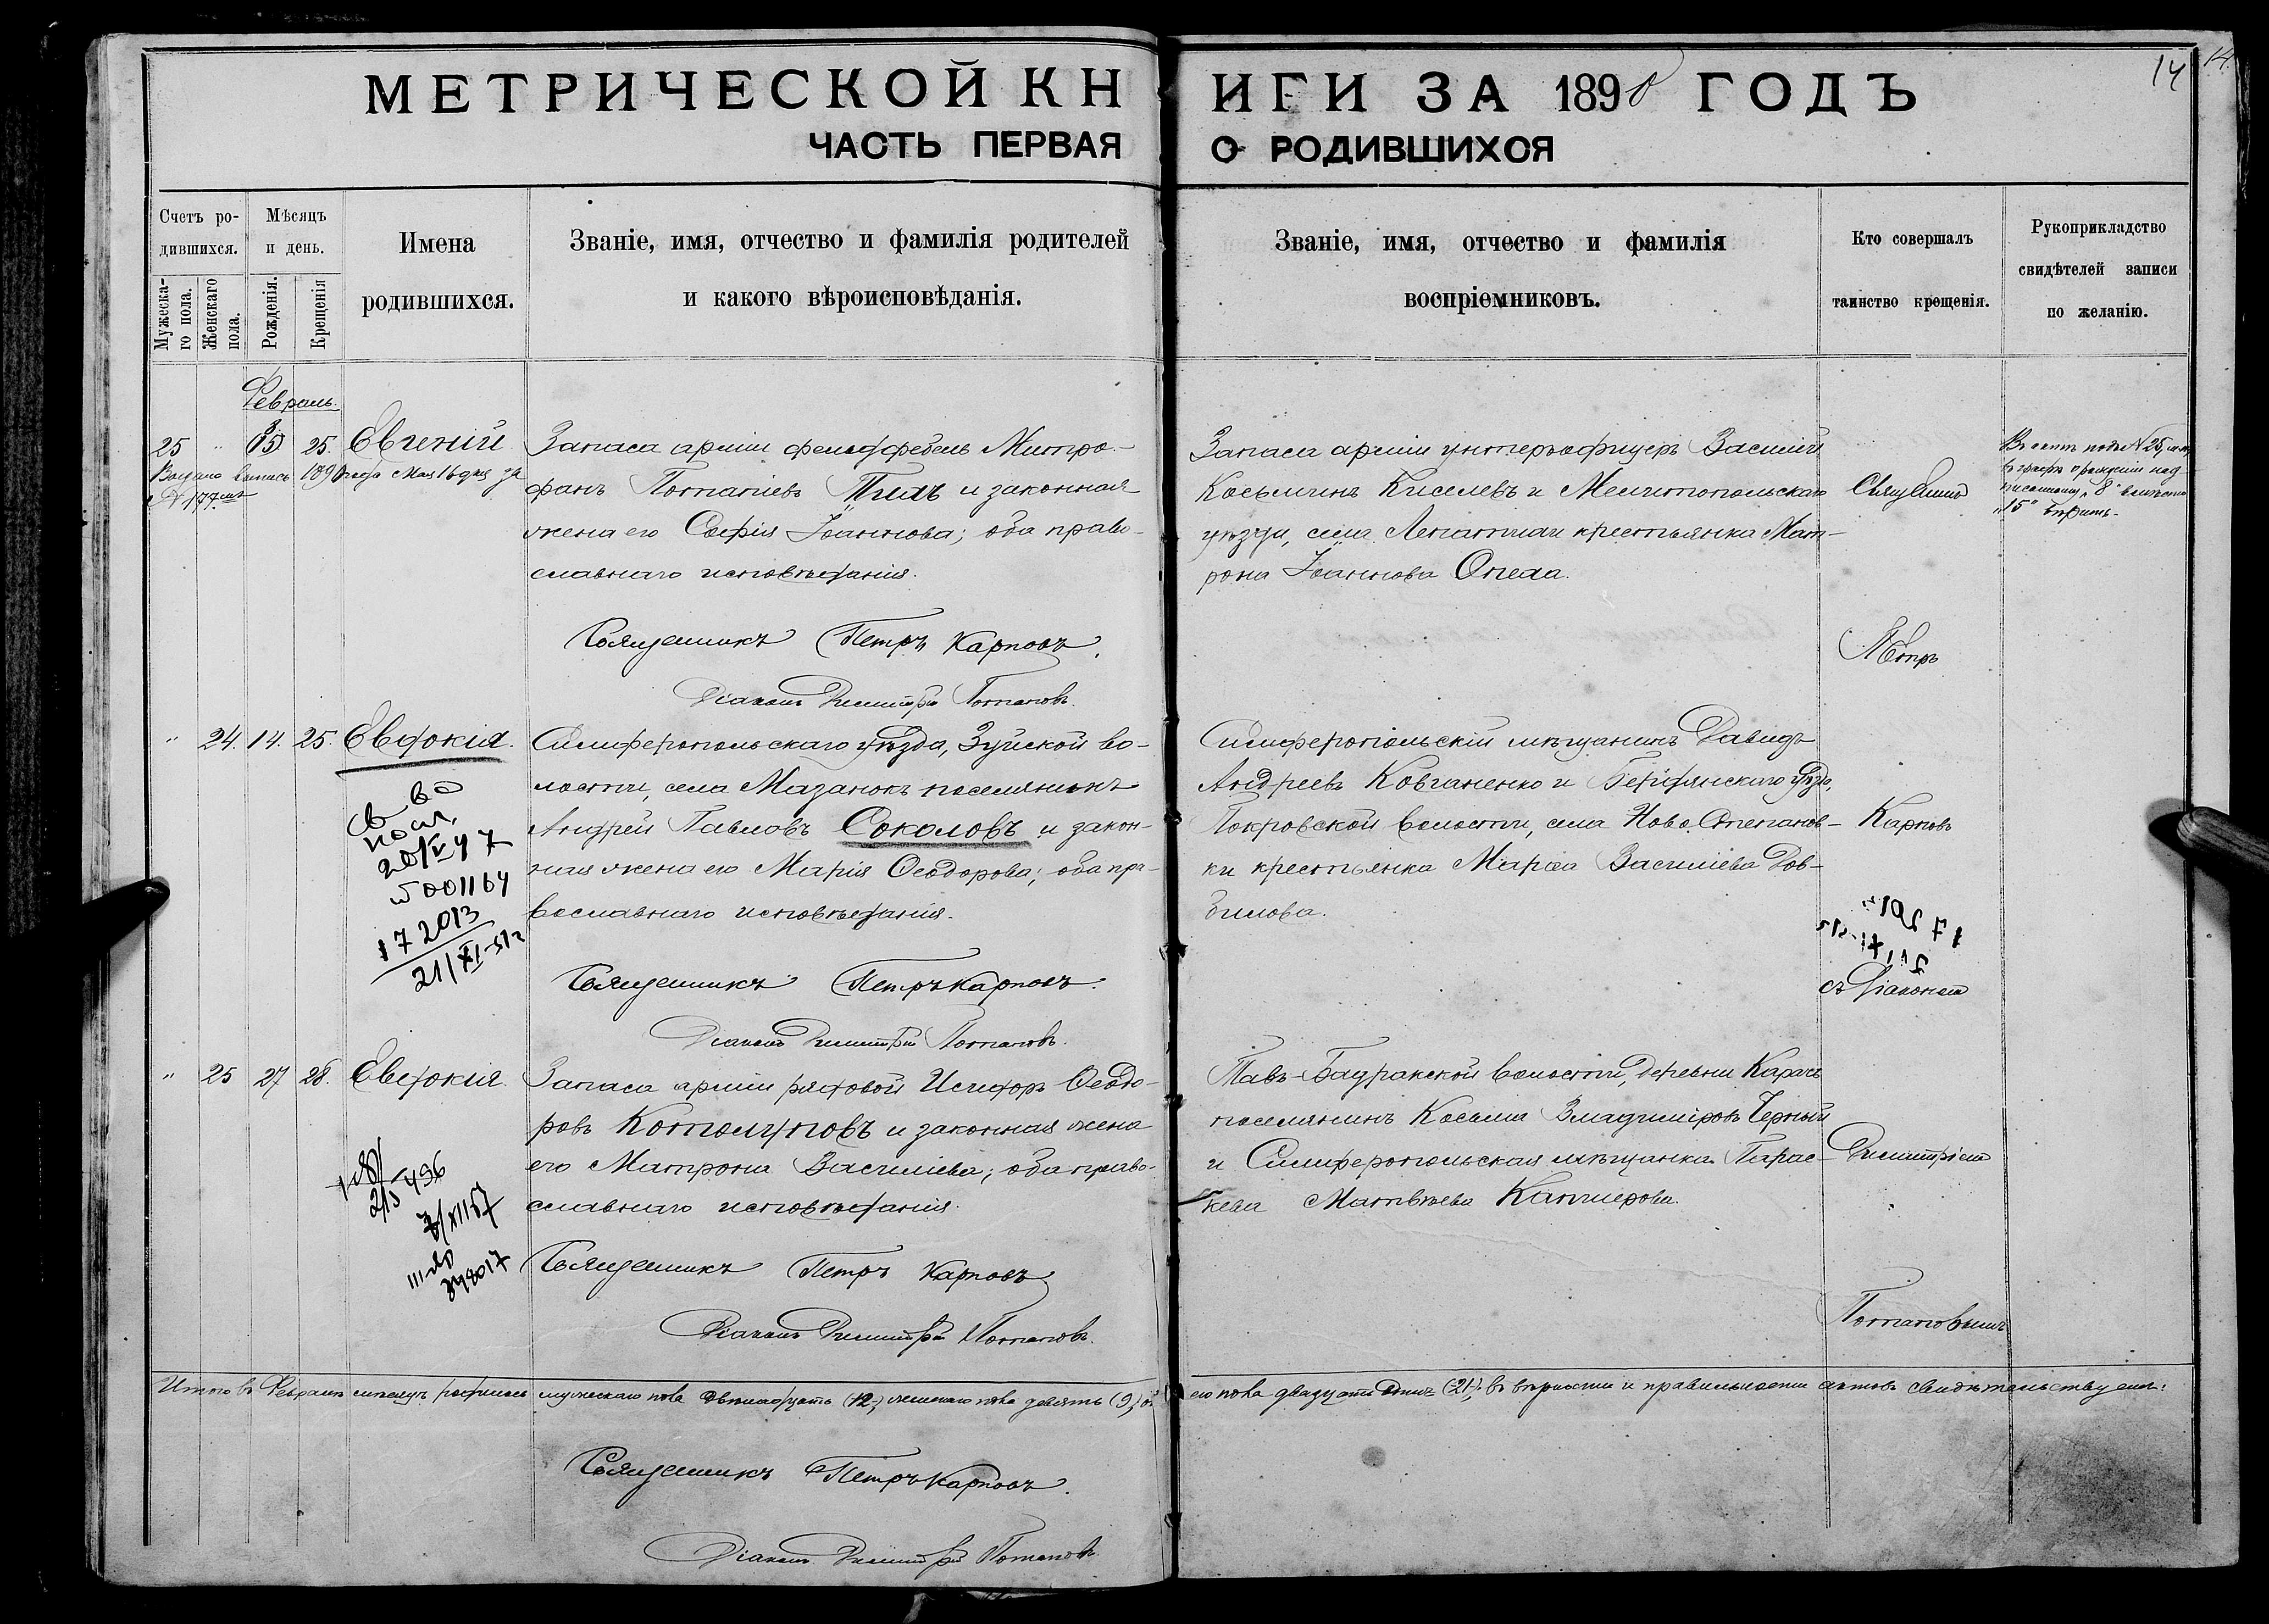 МЕТРИЧЕСКОЙ КНИГИ ЗА 1890 ГОДЪ
14
14.
ЧАСТЬ ПЕРВАЯ О РОДИВШИХСЯ
Счетъ ро-
дившихся.
Мужеска-
го пола.
Женскаго
пола.
Мѣсяцъ
и день.
Рожденія.
Крещенія
Имена
родившихся.
Званіе, имя, отчество и фамилія родителей
и какого вѣроисповѣданія.
Званіе, имя, отчество и фамилія
воспріемниковъ.
Кто совершалъ
таинство крещенія.
Рукоприкладство
свидѣтелей записи
по желанію.
Февраль.
25 " 8 (15) 25. Евгеній
Запаса арміи фельдфебель Митро-
фанъ Потапіевъ Пиль и законная
жена его Софія Іоаннова; оба право-
славнаго исповѣданія.
Священникъ Петръ Карповъ.
Діаконъ Димитрій Потаповъ.
Запаса арміи унтеръофицеръ Василій
Косьминъ Киселевъ и Мелитопольскаго
уѣзда, села Лепатихи крестьянка Мат-
рона Іоаннова Опела.
Священникъ
Петръ
Въ актѣ подъ №25, въ
графѣ о рожденіи над-
писанному „8" вмѣсто
„15" вѣрить.
" 24. 14. 25. Евдокія.
Симферопольскаго уѣзда, Зуйской во-
лости, села Мазанокъ поселянинъ
Андрей Павловъ Соколовъ и закон-
ная жена его Марія Ѳеодорова; оба пра-
вославнаго исповѣданія.
Священникъ Петръ Карповъ.
Діаконъ Димитрій Потаповъ.
Симферопольскій мѣщанинъ Давидъ
Андреевъ Ковганенко и Бердянскаго уѣзда,
Покровской волости, села Ново-Степанов-
ки крестьянка Марѳа Василіева Дов-
билова.
Карповъ
съ Діакономъ
172013
21/XI-51г
" 25 27 28. Евдокія.
Запаса арміи рядовой Исидоръ Ѳеодо-
ровъ Котолуповъ и законная жена
его Матрона Василіева; оба право-
славнаго исповѣданія.
Священникъ Петръ Карповъ
Діаконъ Димитрій Потаповъ.
Тавъ-Бадракской волости, деревни Карачъ
поселянинъ Косьма Владиміровъ Черный
и Симферопольская мѣщанка Парас-
кева Матвѣева
Димитріемъ
Потаповымъ
Итого въ Февралѣ мѣсяцѣ родилось мужескаго пола двѣнадцать (12), женскаго пола девять (9),
его пола двадцать одинъ (21). въ вѣрности и правильности актовъ свидѣтельствуемъ:
Священникъ Петръ Карповъ.
Діаконъ Димитрій Потаповъ.